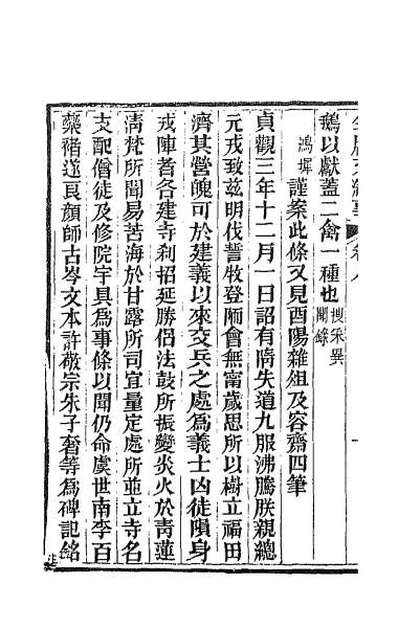 鵝以獻蓋二禽一種也搜采異聞錄
鴻墀謹案此條又見酉陽雜俎及容齋四筆
貞觀三年十二月一日詔有隋失道九服沸騰朕親總
元戎致茲明伐誓牧登陑會無甯歲思所以樹立福田
濟其營魄可於建義以來交兵之處為義士凶徒隕身
戎陣者各建寺剎招延勝侶法鼓所振變炎火於青蓮
清梵所聞易苦海於甘露所司宜量定處所並立寺名
支配僧徒及修院宇具為事條以聞仍命虞世南李百
藥褚遂良顏師古岑文本許敬宗朱子奢等為碑記銘